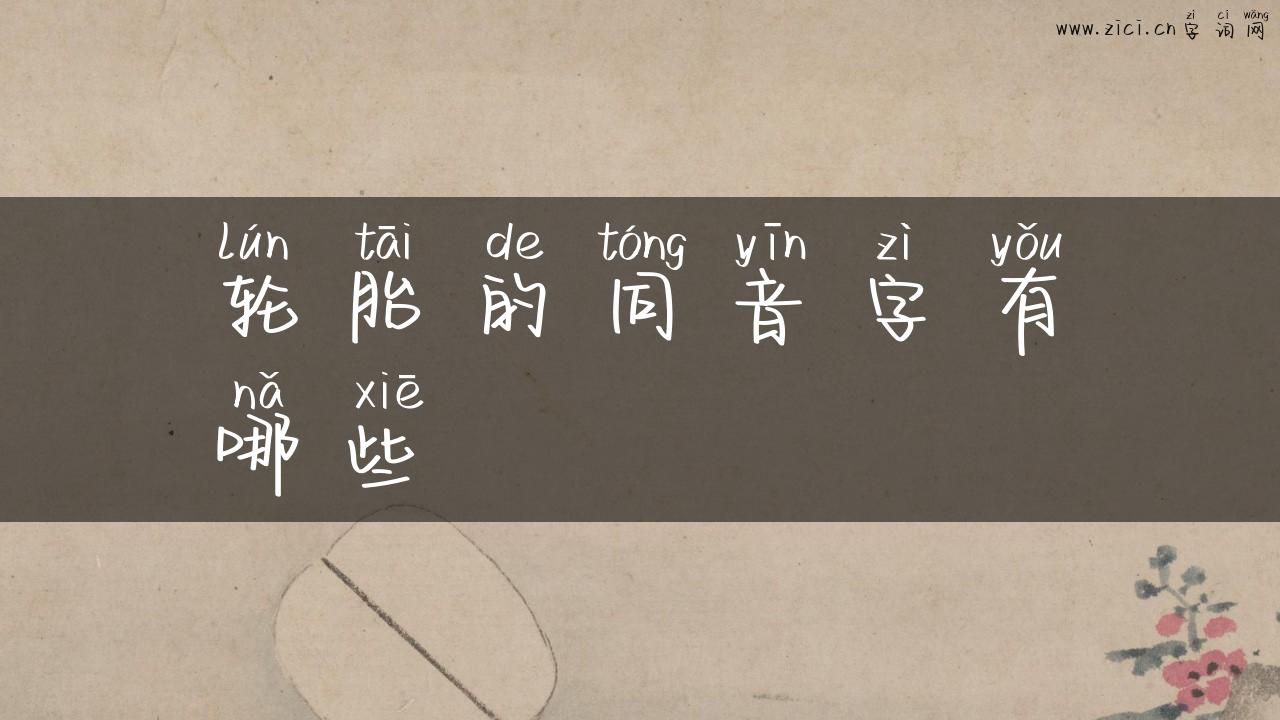 zì cí wǎng
www.zici.cn 字 词 网
lún tāi de tóng yīn zì yǒu
轮 胎 的 同 音 字 有
nǎ xiē
哪 些